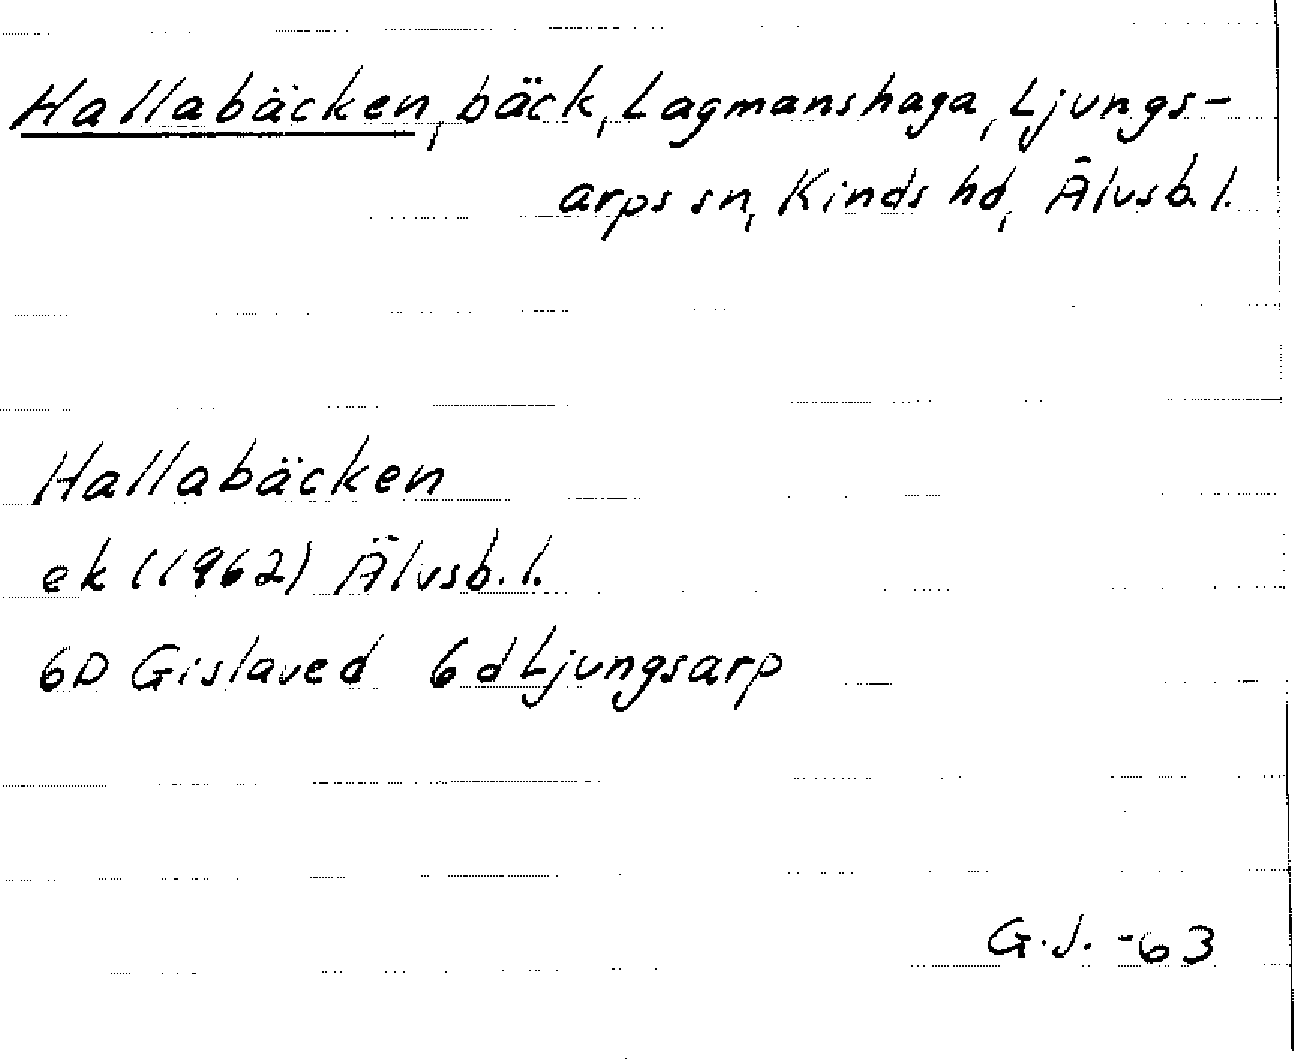 Hallabäcken, bäck, Lagmanshaga, Ljungs-
arps sn, Kinds hd, Älvsb. l.
Hallabäcken
ek (1962) Älvsb. l.
6D Gislaved 6d Ljungsarp
G.J. -63